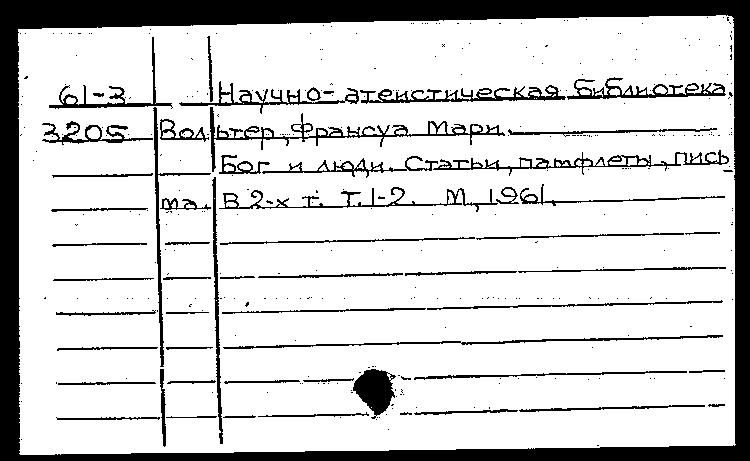 61-3 Научно-атеистическая библиотека.
3205 Вольтер, Франсуа Мари.
Бог и люди. Статьи, памфлеты, пись
ма. В 2-х т. Т. 1-2. М, 1961.